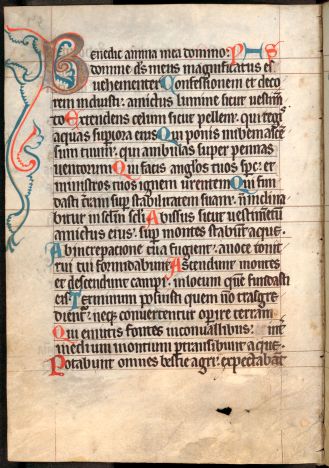 Benedic anima mea domino: PHS
domine ds meus magnificatus es
uehementer Confessionem et deco
rem induisti: amictus lumine sicut uestim̄to
Extendens celum sicut pellem: qui tegis
aquas supiora eius Qui ponis nubem ascē
sum tuum: qui ambulas super pennas
uentorum Qui facis anglos tuos spc: et
ministros tuos ignem urentem Qui fun
dasti t̄ram sup stabilitatem suam: n̄ inclina
bitur in sclm scli Abissus sicut uestim̄tū
amictus eius: sup montes stabūt aque.
Ab increpacione tua fugient: a uoce tonit
rui tui formidabunt Ascendunt montes
et descendunt campi: in locum quē fundasti
eis Terminum posuisti quem nō trāsgre
dientˀ: neq; conuertentur opire terram
Qui emittis fontes in conuallibus: int̾
medium montium p̄transibunt aque.
Potabunt omnes bestie agri: expectabūt